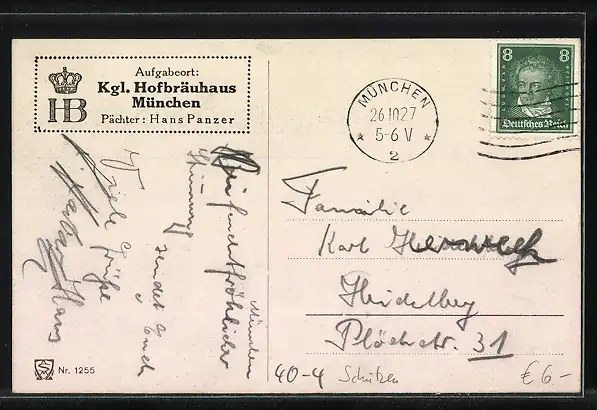 Aufgabeort:
Kgl. Hofbräuhaus
München
Pächter: Hans Panzer
HB
MÜNCHEN
26.10.27
5-6 V
* 2 *
8 8
Deutsches Reich
München
feuchtfröhlicher
Stimmung
sendet Euch
Viele Grüße
Hans
Familie
Karl
Heidelberg
Plöckstr. 31
Nr. 1255
40-4 Schützen
€ 6.-